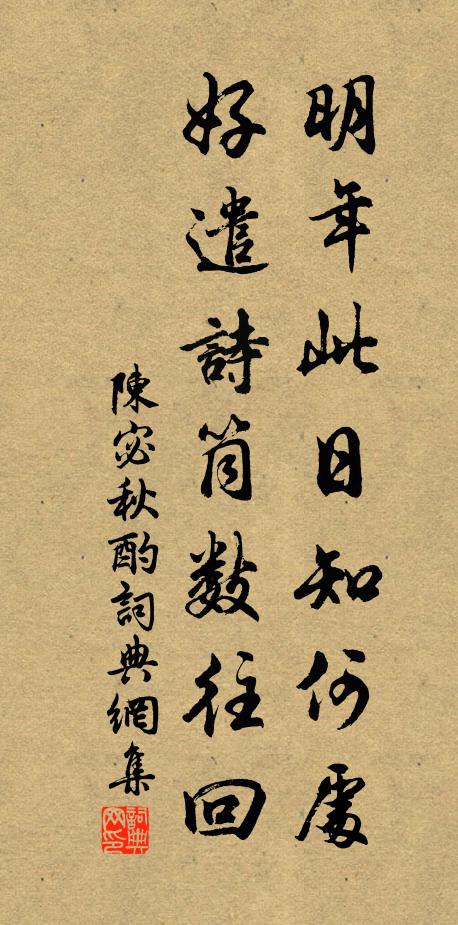 明年此日知何處
好遣詩筒數往回
陳宓秋酌詞典網集
詞典网印